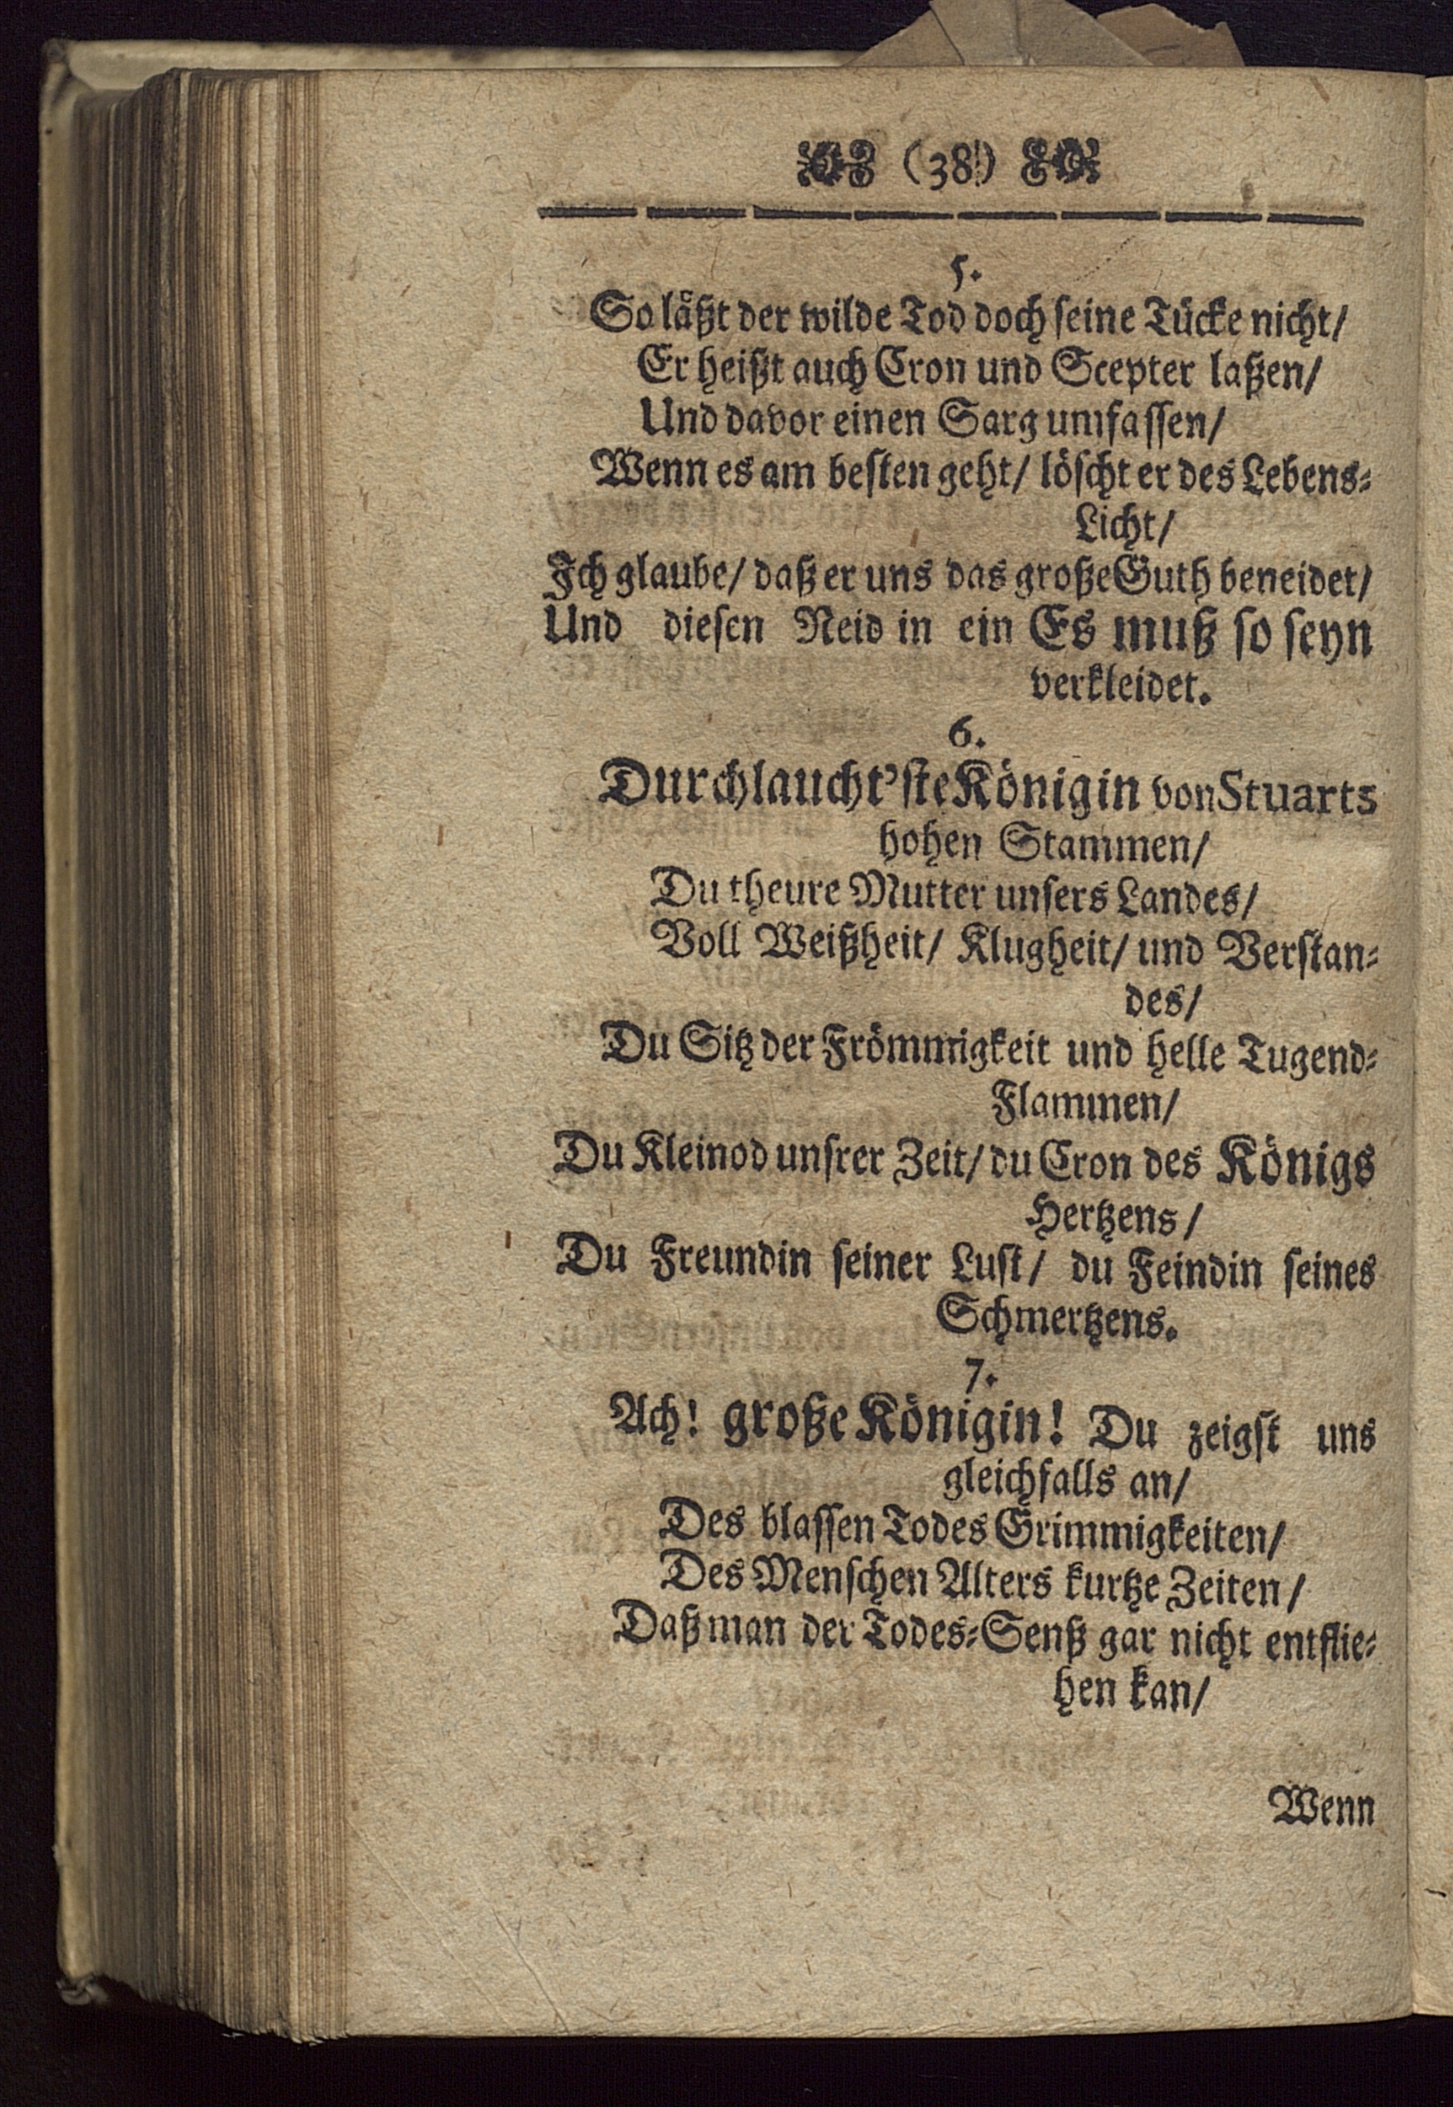 (38)
5.
So läßt der wilde Tod doch seine Tücke nicht/
Er heißt auch Cron und Scepter laßen/
Und davor einen Sarg umfassen/
Wenn es am besten geht/ löscht er des Lebens-
Licht/
Ich glaube/ daß er uns das große Guth beneidet/
Und diesen Neid in ein Es muß so seyn
verkleidet.
6.
Durchlaucht'ste Königin von Stuarts
hohen Stammen/
Du theure Mutter unsers Landes/
Voll Weißheit/ Klugheit/ und Verstan-
des/
Du Sitz der Frömmigkeit und helle Tugend-
Flammen/
Du Kleinod unsrer Zeit/ du Cron des Königs
Hertzens/
Du Freundin seiner Lust/ du Feindin seines
Schmertzens.
7.
Ach! große Königin! Du zeigst uns
gleichfalls an/
Des blassen Todes Grimmigkeiten/
Des Menschen Alters kurtze Zeiten/
Daß man der Todes-Senß gar nicht entflie-
hen kan/
Wenn